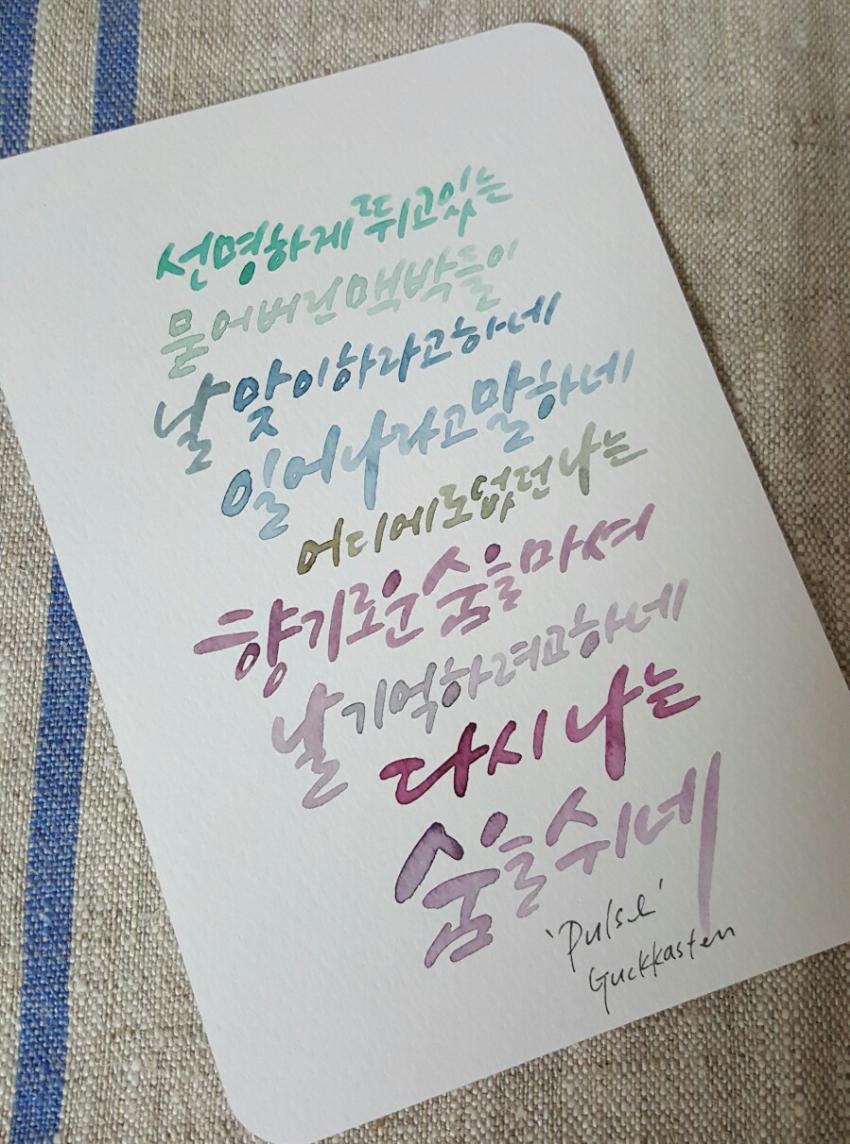 선명하게 뛰고있는
묻어버린 맥박들이
날 맞이하라고하네
일어나라고 말하네
어디에로 없던 나는
향기로운 숨을 마셔
날 기억하려고하네
다시 나는
숨을 쉬네
'Pulse'
Guckkasten